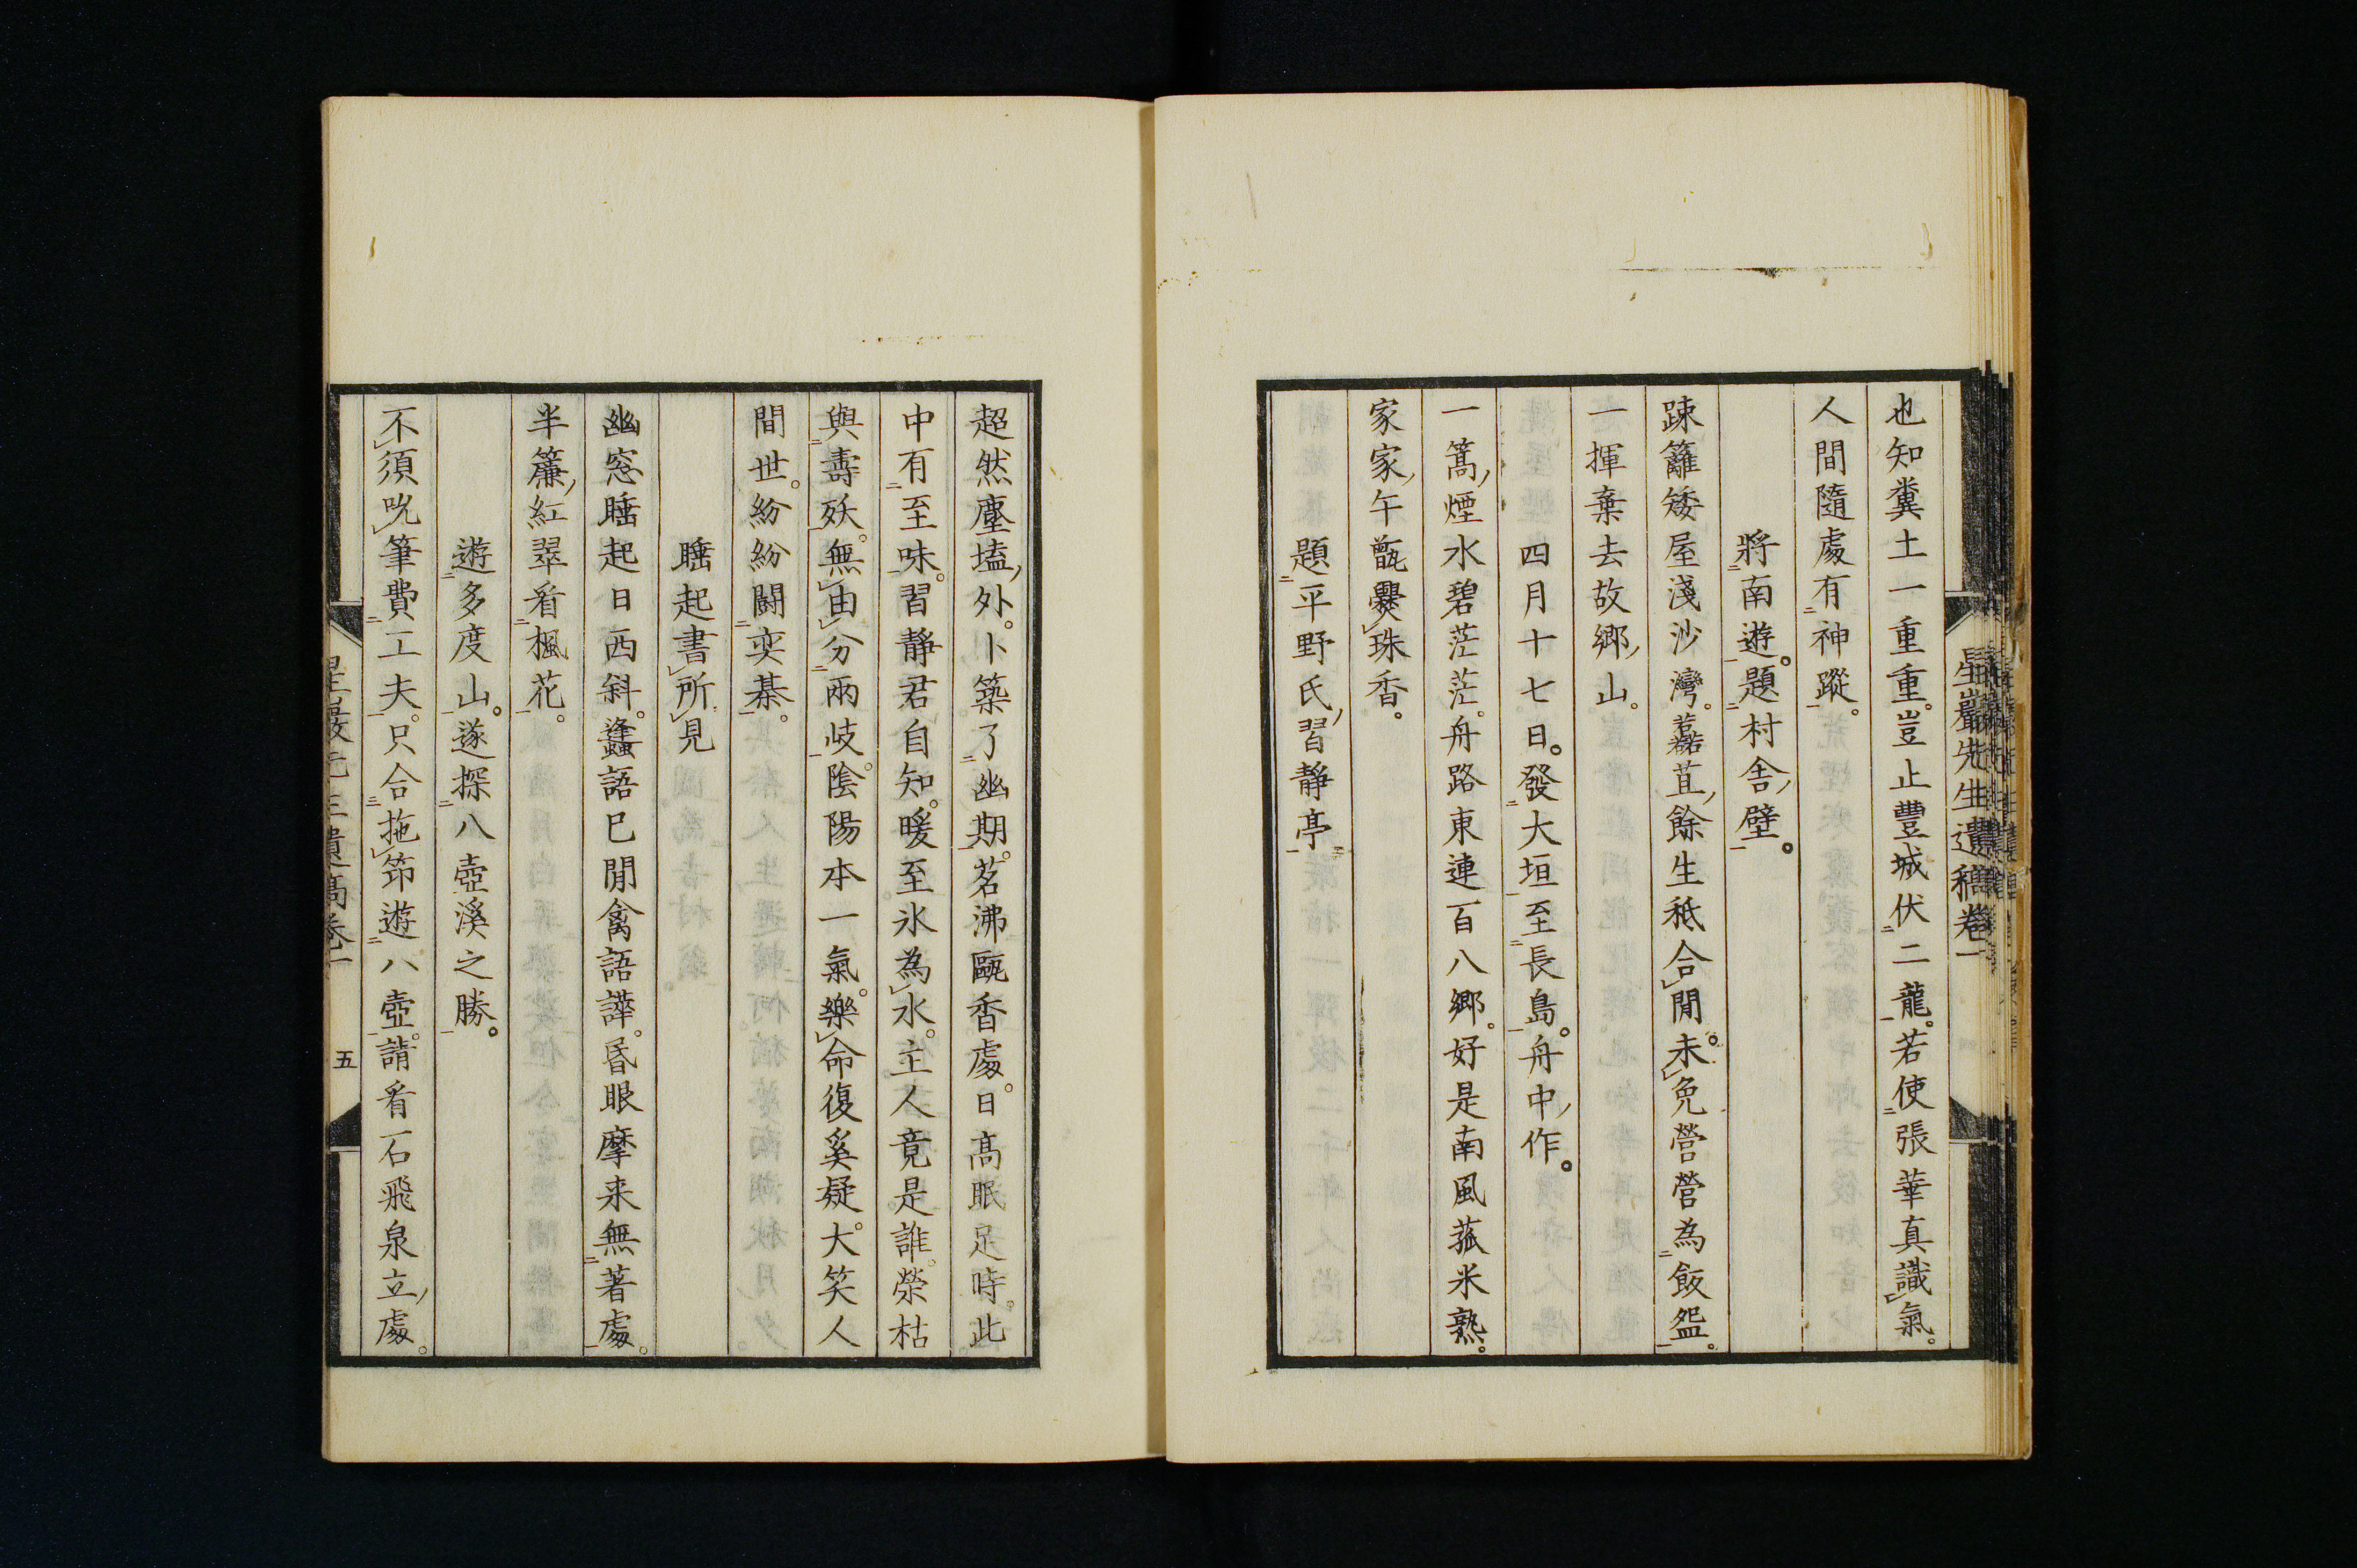 星巖先生遺稿卷一
也知糞土一重重。豈止豐城伏二龍。若使張華真識氣。
人間隨處有神蹤。
將南遊。題村舍壁。
疎籬矮屋淺沙灣。蠚苴餘生秪合閒。未免營營為飯盌。
一揮棄去故鄉山。
四月十七日。發大垣至長島。舟中作。
一篙煙水碧茫茫。舟路東連百八鄉。好是南風菰米熟。
家家午甑爨珠香。
題平野氏習靜亭
超然塵壒外。卜築了幽期。茗沸甌香處。日高眠足時。此
中有至味。習靜君自知。暖至氷為水。主人竟是誰。榮枯
與壽殀。無由分兩岐。陰陽本一氣。樂命復奚疑。大笑人
間世。紛紛鬪奕棊。
睡起書所見
幽窓睡起日西斜。蠭語已閒禽語譁。昏眼摩来無著處。
半簾紅翠看楓花。
遊多度山。遂探八壺溪之勝。
不須吮筆費工夫。只合拖筇遊八壺。請看石飛泉立處。
星巖先生遺稿卷一
五